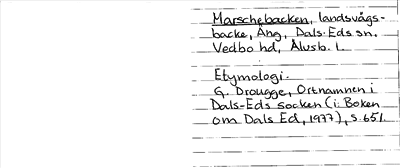 Marschebacken, landsvägs-
backe, Äng, Dals-Eds sn.
Vedbo hd, Älvsb. l.
Etymologi.
G. Drougge, Ortnamnen i
Dals-Eds socken (i: Boken
om Dals Ed, 1977), s. 651.